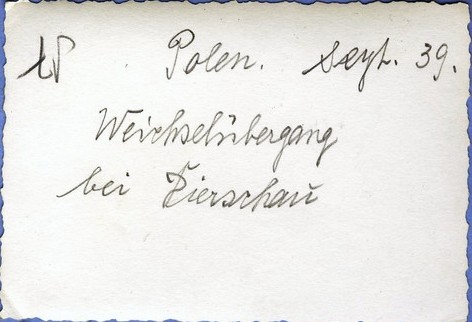 Polen. Sept. 39.
Weichselübergang
bei Dierschau